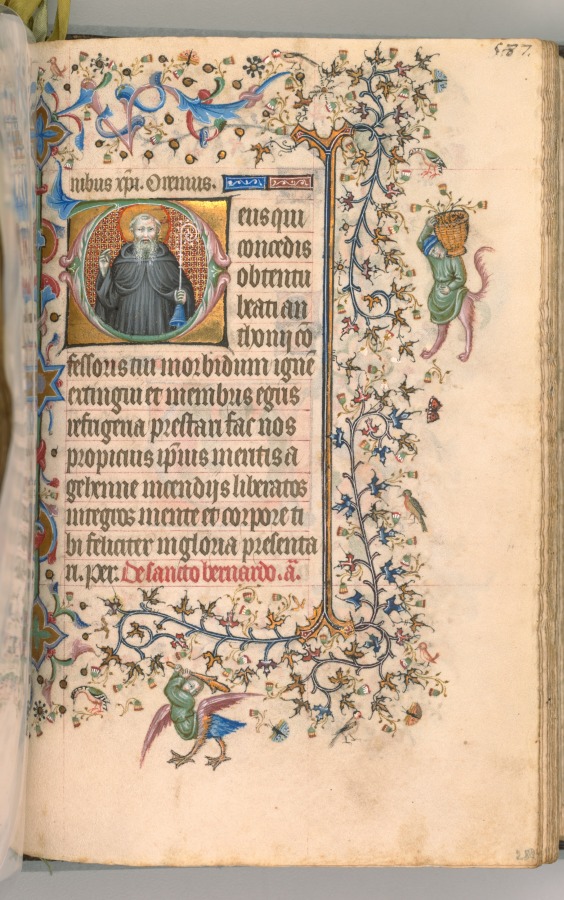 577.
nibus xpi. Oremus.
eus qui
concedis
obtentu
beati an
thonij cō
fessoris tui morbidum igne
extingui et membris egris
refrigeria prestari fac nos
propicius ip̄ius meritis a
gehenne incendijs liberatos
integros mente et corpore ti
bi feliciter in gloria presenta
ri. per. De sancto bernardo. a͞.